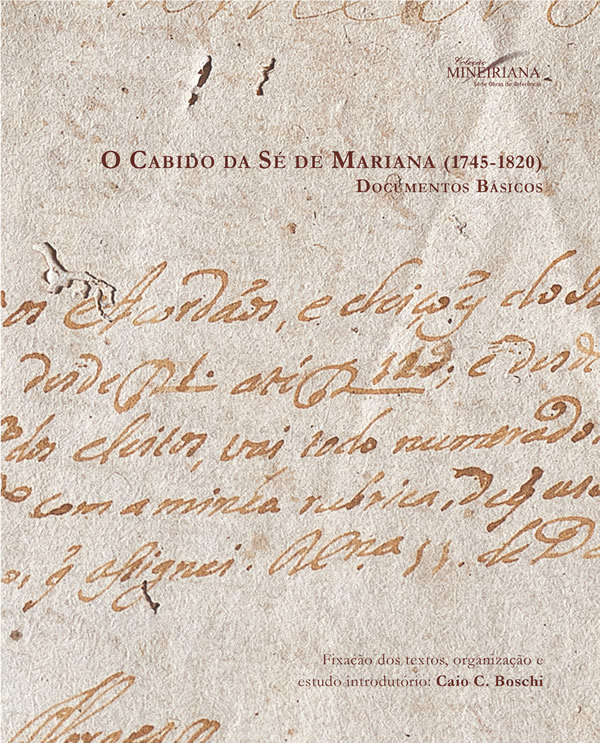 Coleção
MINEIRIANA
Série Obras de Referência
O CABIDO DA SÉ DE MARIANA (1745-1820)
DOCUMENTOS BÁSICOS
os Acordãos, e eleiçoẽs do
desde f. 1. até f. 120; e desde
dos eleitos, vai todo numerado
com a minha rubrica, de q̃ uso
, q̃ assignei. Mar.na 11. de De
Fixação dos textos, organização e
estudo introdutório: Caio C. Boschi